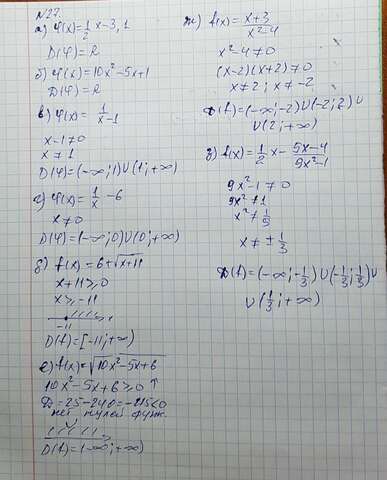 №27
а) φ(x)=1/2 x-3,1
D(φ)=R
б) φ(x)=10x²-5x+1
D(φ)=R
в) φ(x)= 1/(x-1)
x-1≠0
x≠1
D(φ)=(-∞;1)∪(1;+∞)
г) φ(x)= 1/x -6
x≠0
D(φ)=(-∞;0)∪(0;+∞)
д) f(x)=6+√(x+11)
x+11≥0
x≥-11
-11
D(f)=[-11;+∞)
е) f(x)=√(10x²-5x+6)
10x²-5x+6≥0 ↑
D=25-240=-215<0
нет нулей функ.
D(f)=(-∞;+∞)
ж) f(x)= (x+3)/(x²-4)
x²-4≠0
(x-2)(x+2)≠0
x≠2; x≠-2
D(f)=(-∞;-2)∪(-2;2)∪
∪(2;+∞)
з) f(x)= 1/2 x- (5x-4)/(9x²-1)
9x²-1≠0
9x²≠1
x²≠1/9
x≠±1/3
D(f)=(-∞;-1/3)∪(-1/3;1/3)∪
∪(1/3;+∞)